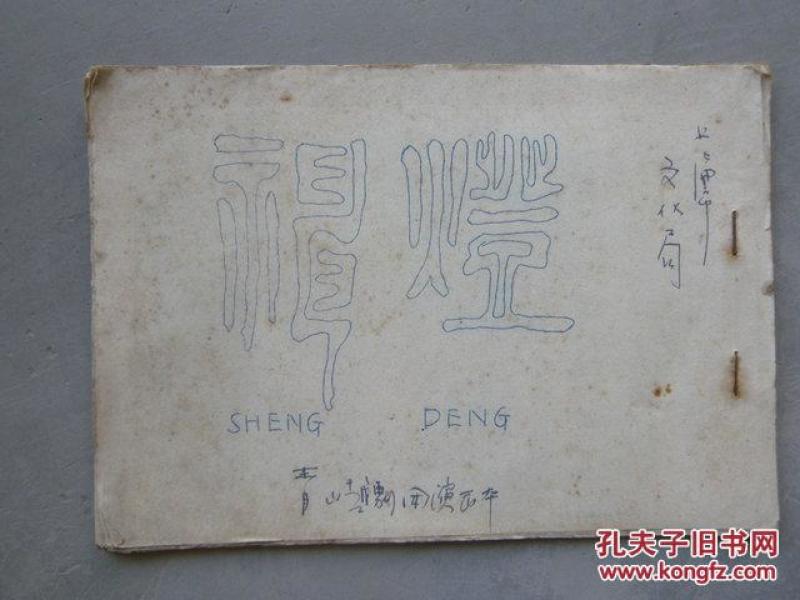 神燈
SHENG DENG
文化局
青山劇团演出本
孔夫子旧书网
www.kongfz.com